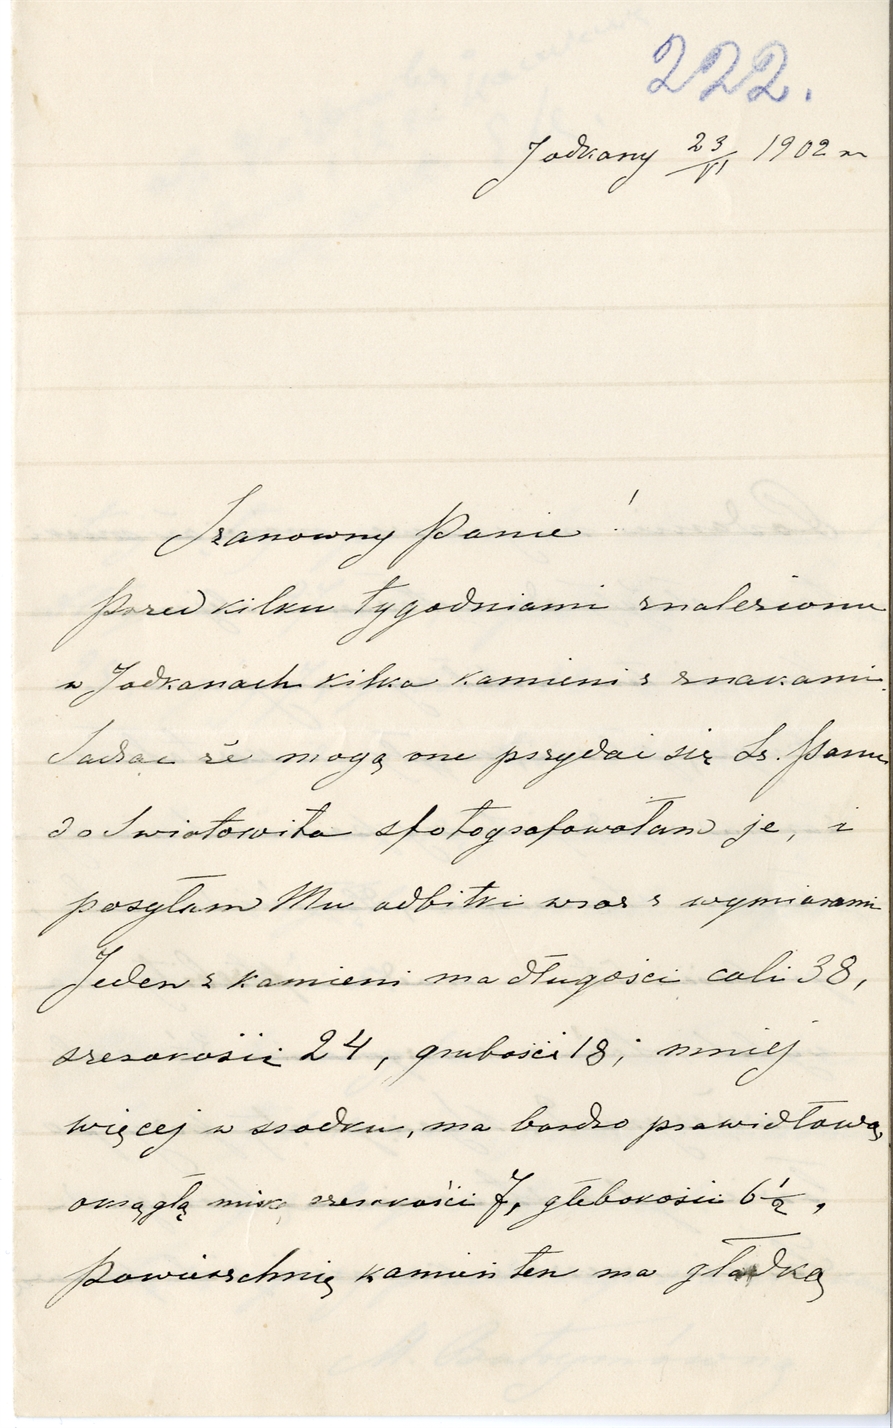 222.
Jodkany 23/VI 1902 r
Szanowny Panie!
Przed kilku tygodniami znaleziono
w Jodkanach kilka kamieni z znakami.
Sądząc że mogą one przydać się Sz. Panu
do Swiatowita sfotografowałam je, i
posyłam Mu odbitki wraz z wymiarami
Jeden z kamieni ma długości cali 38,
szerokości 24, grubości 18; mniej
więcej w srodku, ma bardzo prawidłową,
okrągłą miskę szerokości 7, głębokości 6 1/2,
Powierzchnię kamień ten ma gładką